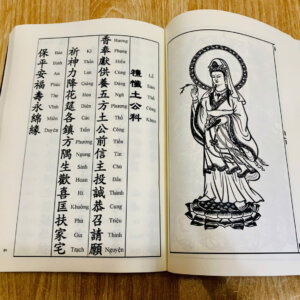 禮懺土公科
Lễ Sám Thổ Công Khoa
香奉獻供養五方土公前信主投誠恭召請願
Hương Phụng Hiến Cúng Dưỡng Ngũ Phương Thổ Công Tiền Tín Chủ Đầu Thành Cung Triệu Thỉnh Nguyện
祈神力降花筵各鎮方隅生歡喜匡扶家宅
Kì Thần Lực Giáng Hoa Diên Các Trấn Phương Ngung Sinh Hoan Hỉ Khuông Phù Gia Trạch
保平安福壽永綿緣
Bảo Bình An Phúc Thọ Vĩnh Miên Duyên